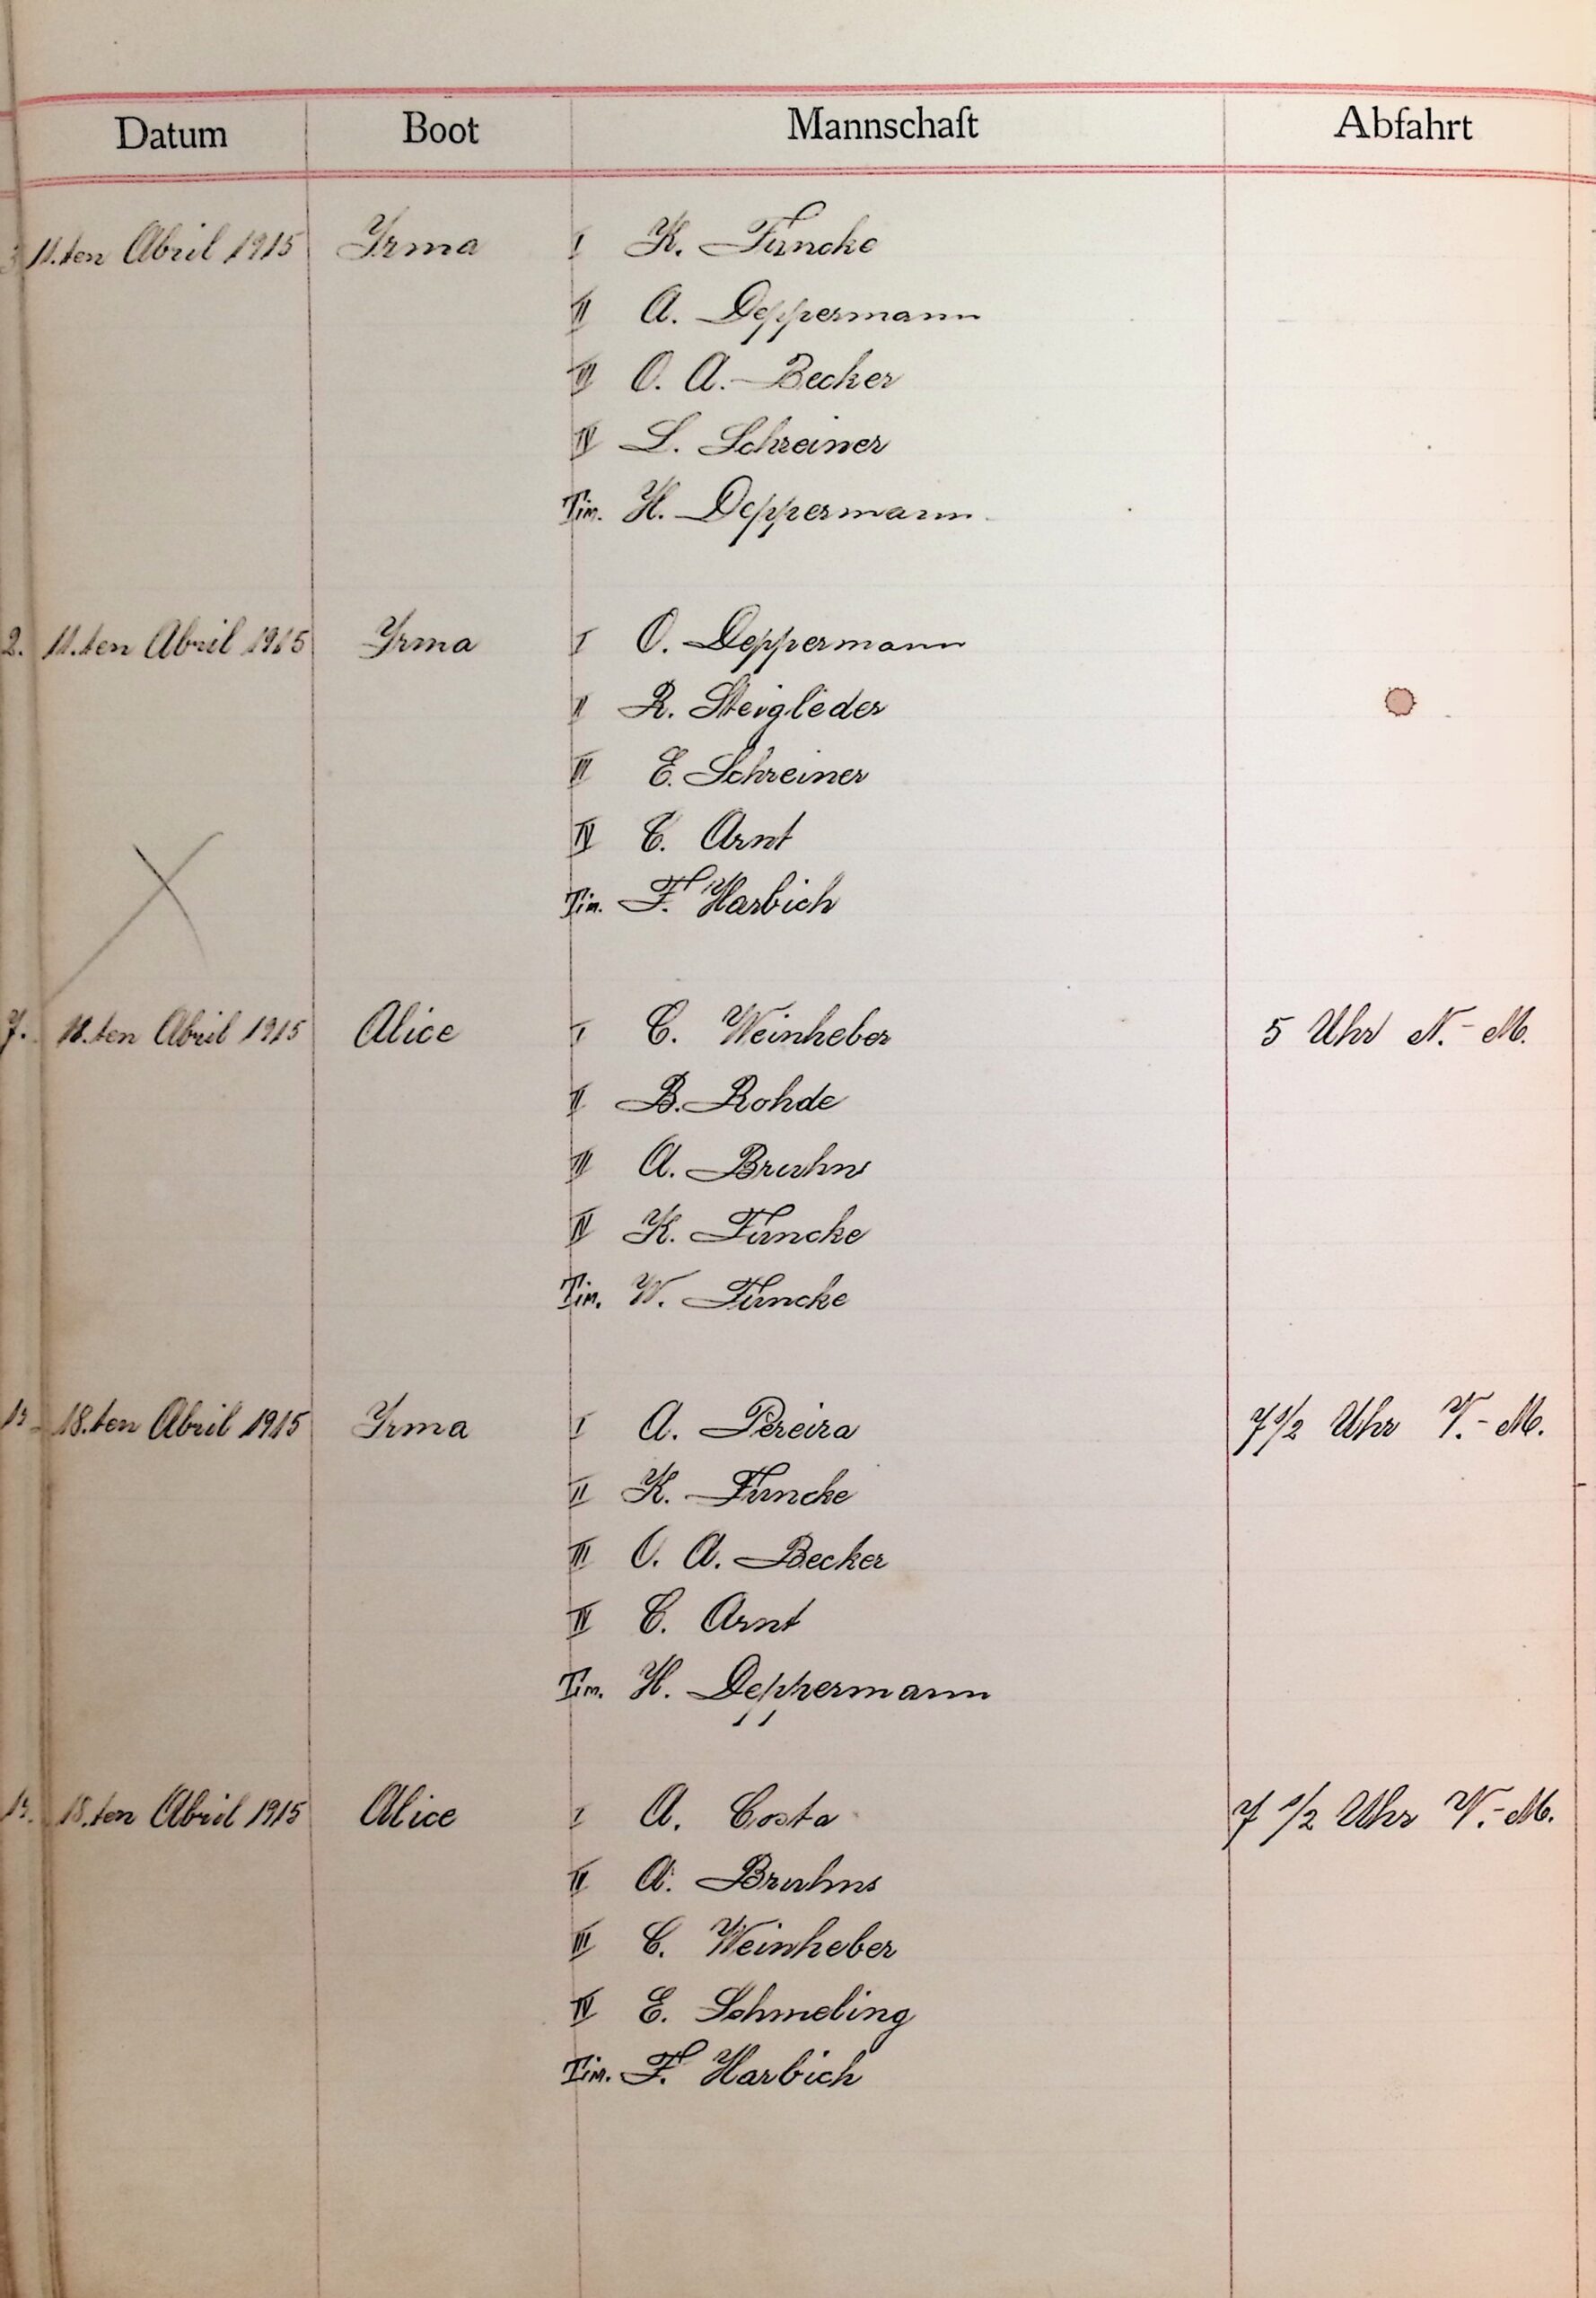 Datum Boot Mannschaft Abfahrt
11.ten Abril 1915 Yrma I K. Funcke
II A. Deppermann
III O. A. Becker
IV L. Schreiner
Tim. H. Deppermann
2. 11.ten Abril 1915 Yrma I O. Deppermann
II R. Steigleder
III E. Schreiner
IV C. Arnt
Tim. F. Harbich
7. 18.ten Abril 1915 Alice I C. Weinheber 5 Uhr N.-M.
II B. Rohde
III A. Bruhns
IV K. Funcke
Tim. W. Funcke
18.ten Abril 1915 Yrma I A. Pereira 7 1/2 Uhr V.-M.
II K. Funcke
III O. A. Becker
IV C. Arnt
Tim. H. Deppermann
18.ten Abril 1915 Alice I A. Costa 7 1/2 Uhr V.-M.
II A. Bruhns
III C. Weinheber
IV E. Schmeling
Tim. F. Harbich